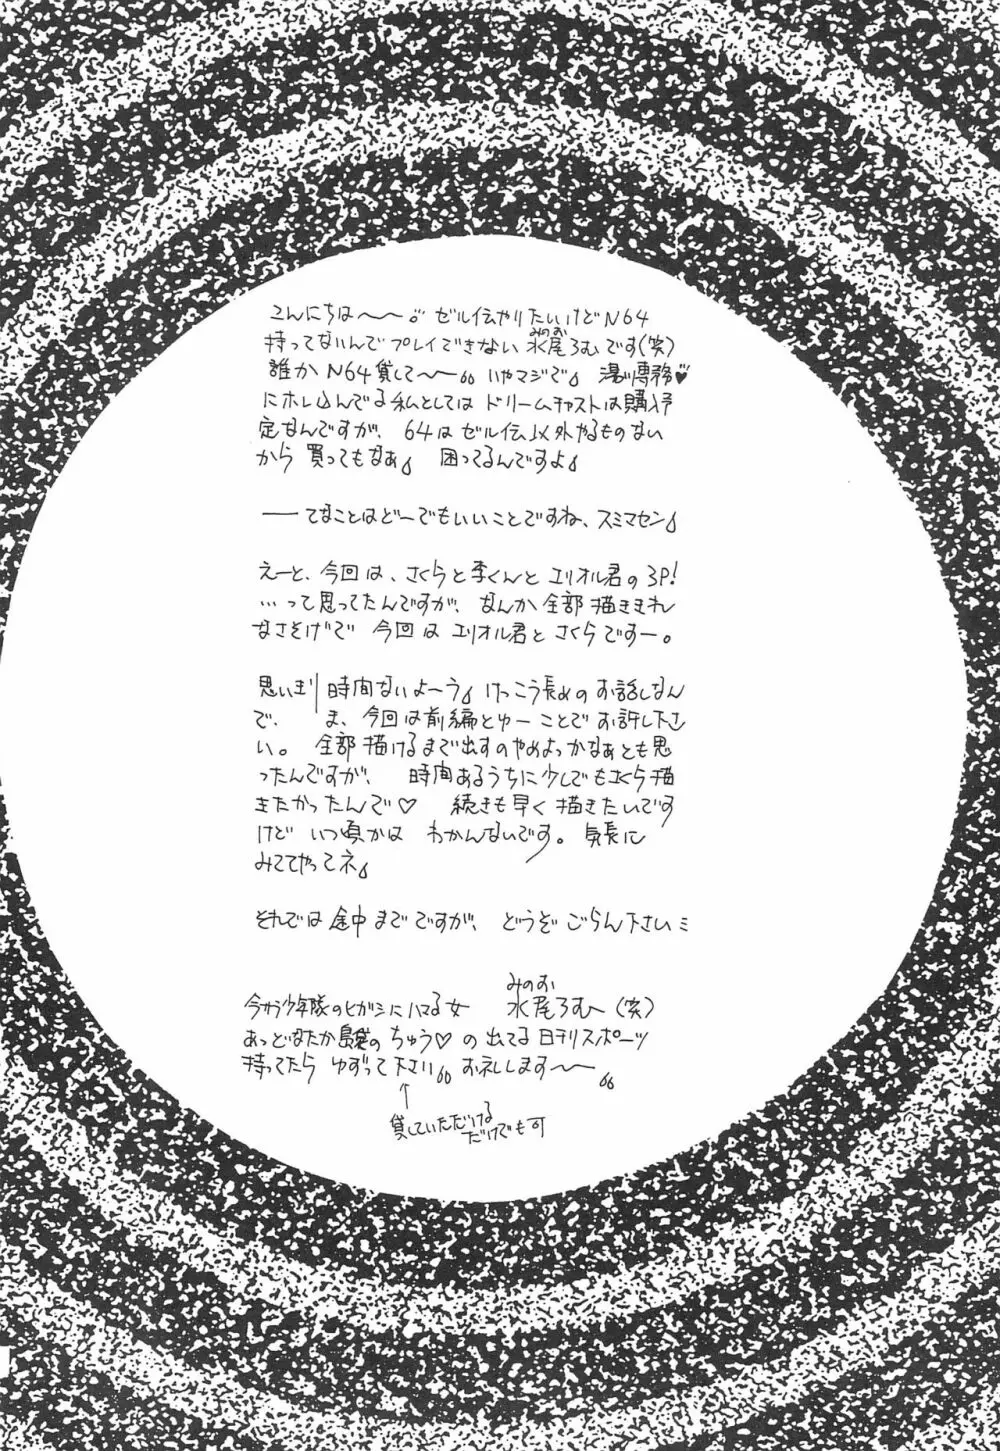 こんにちは〜〜。ゼル伝やりたいけどN64
持ってないんでプレイできない水尾ろむです(笑)
みのお
誰かN64貸して〜〜。いやマジで 湯川専務♥
にホレ込んでる私としてはドリームキャストは購入予
定なんですが、64はゼル伝以外やるものない
から買ってもなぁ 困ってるんですよ
――てなことはどーでもいいことですね、スミマセン
えーと、今回は、さくらと李くんとエリオル君の3P!
…って思ってたんですが、なんか全部描ききれ
なさそげで今回はエリオル君とさくらですー。
思いきり時間ないよーう けっこう長めのお話しなん
で、ま、今回は前編とゆーことでお許し下さ
い。全部描けるまで出すのやめよっかなぁとも思
ったんですが、時間あるうちに少しでもさくら描
きたかったんで♡ 続きも早く描きたいです
けどいつ頃かはわかんないです。気長に
みててやってネ
それでは途中までですが、どうぞごらん下さいミ
みのお
今さら少年隊のヒガシにハマる女 水尾ろむ〜(笑)
あっどなたか のちゅう♡の出てる日刊スポーツ
持ってたらゆずって下さい お礼します〜〜
↑
貸していただける
だけでも可